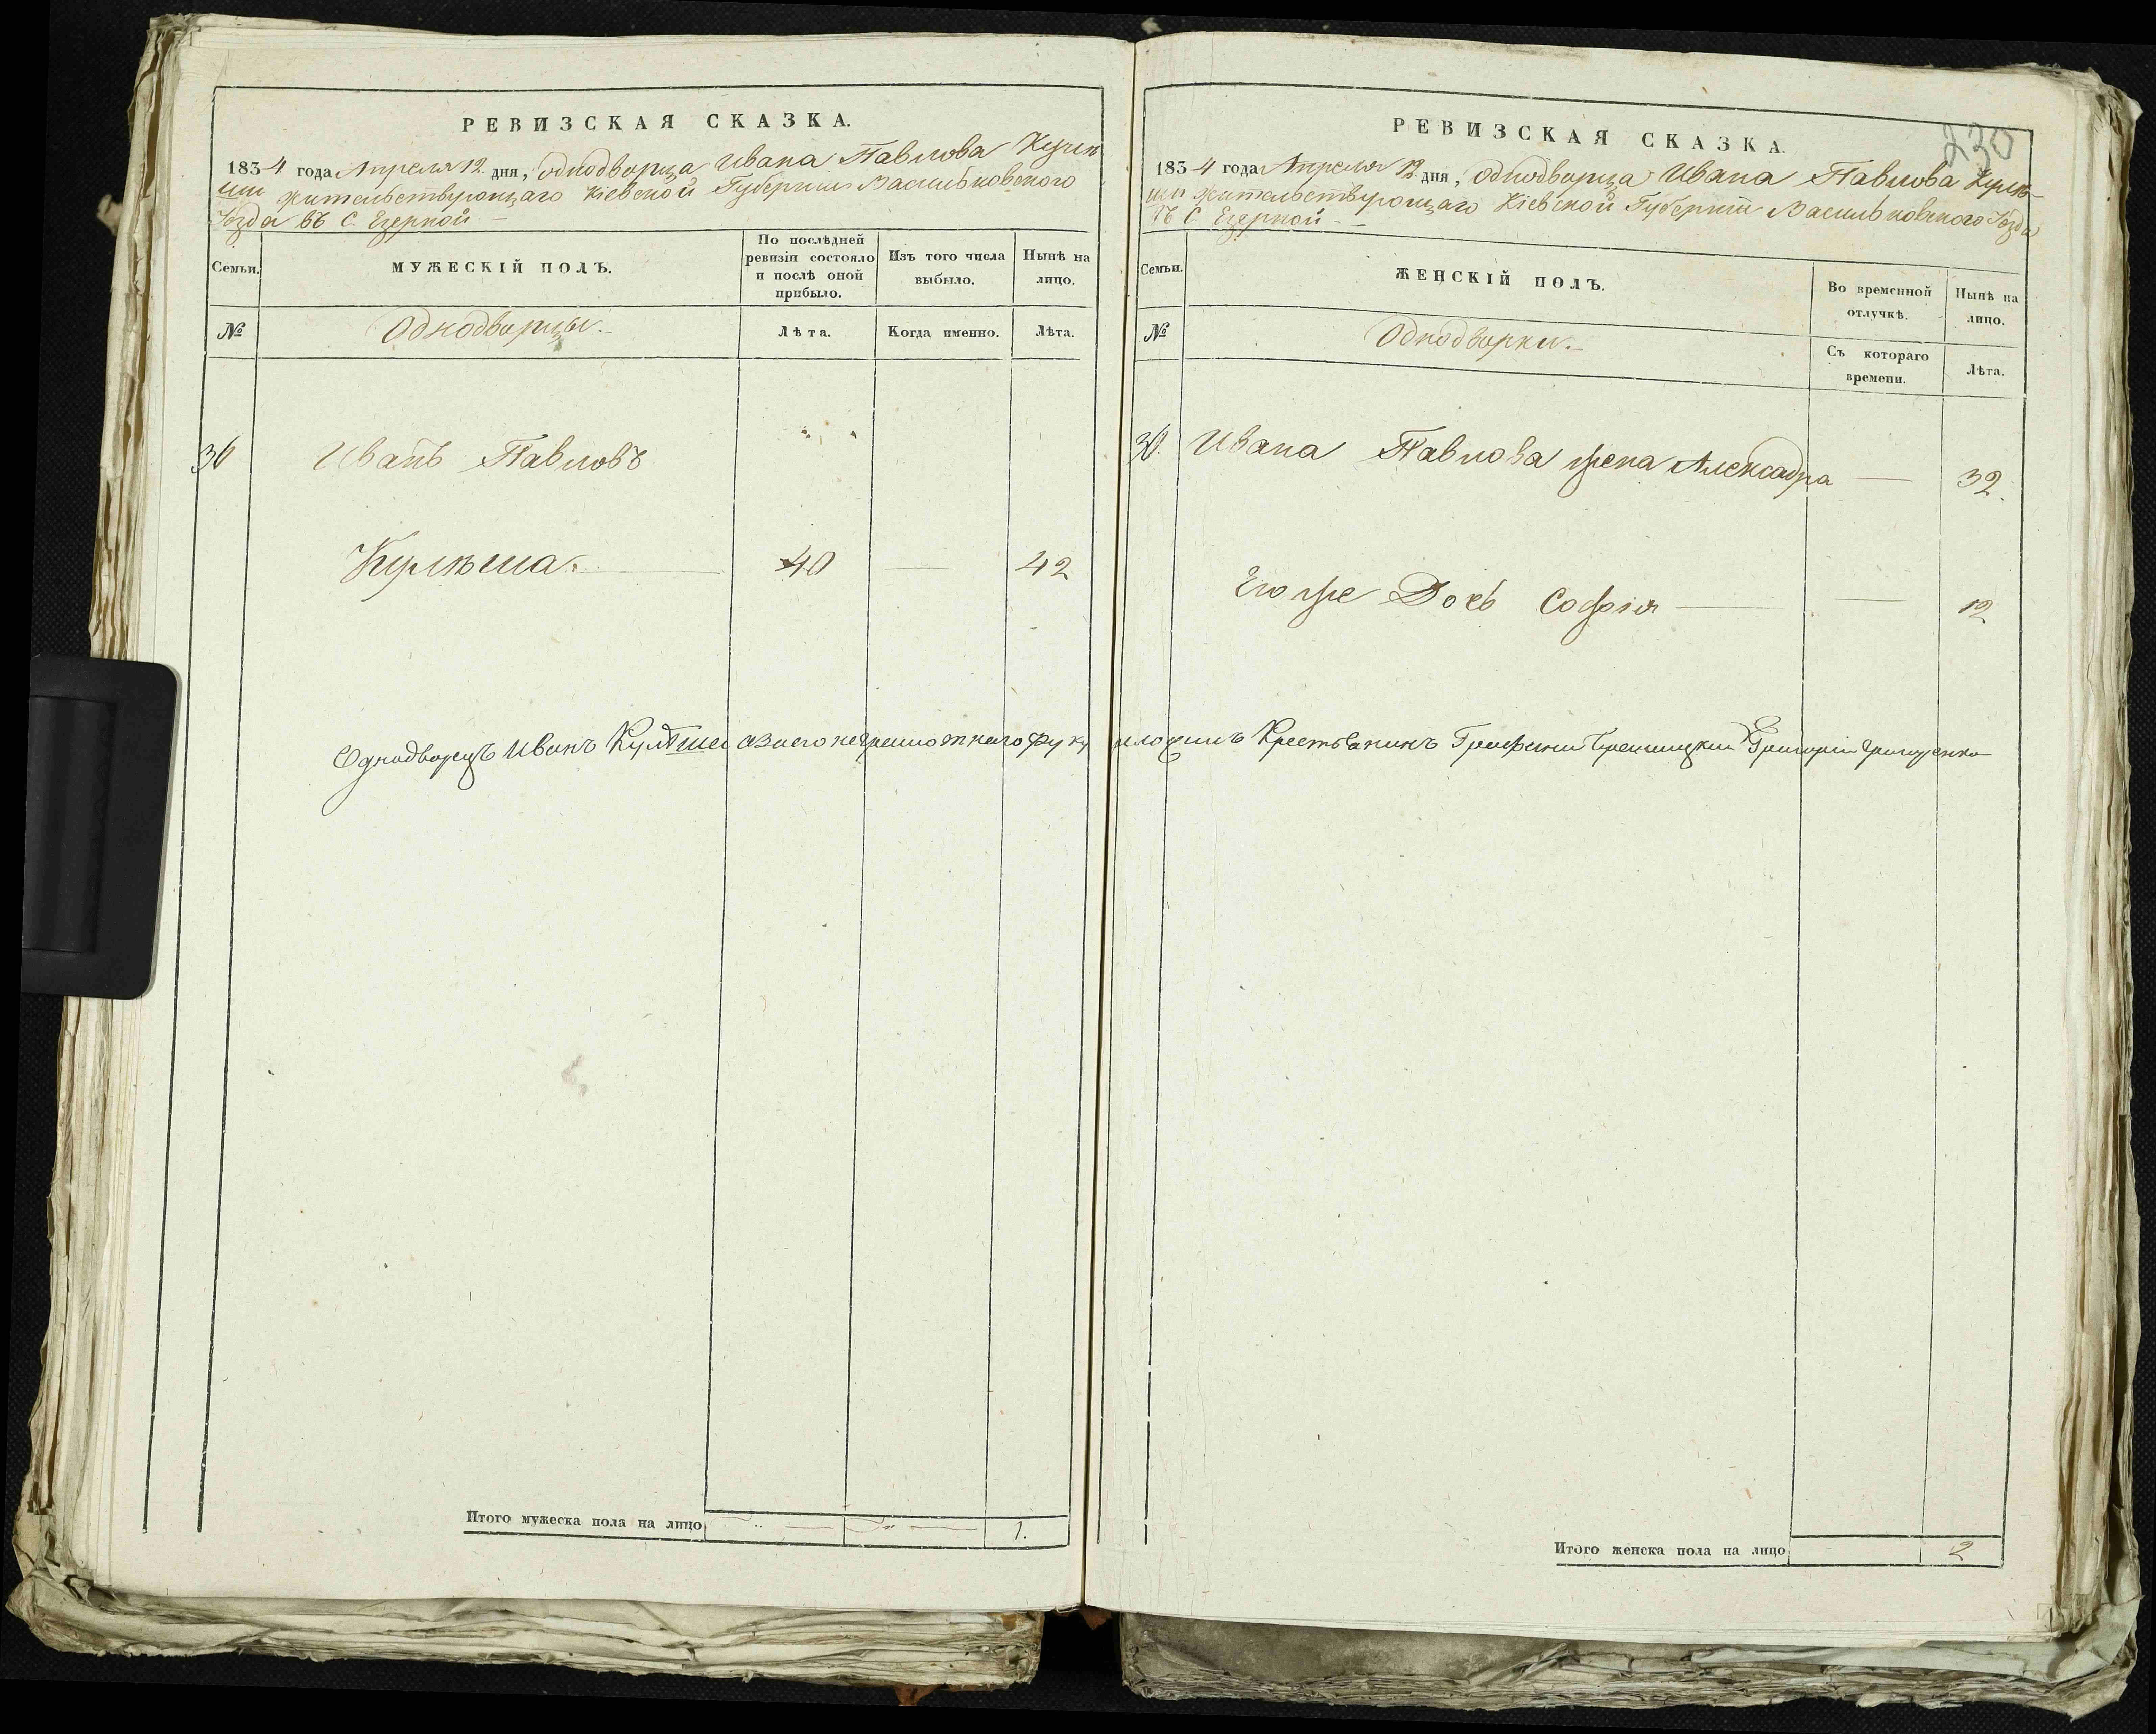 РЕВИЗСКАЯ СКАЗКА.
1834 года Апреля 12 дня, однодворца Ивана Павлова Кулѣ
ши жительствующаго Кіевской Губерніи Васильковского
Уѣзда въ С. Езерной
Семьи.
МУЖЕСКІЙ ПОЛЪ.
По послѣдней ревизіи состояло и послѣ оной прибыло.
Изъ того числа выбыло.
Нынѣ на лицо.
№
Однодворцы.
Лѣта.
Когда именно.
Лѣта.
30 Иванъ Павловъ
Кулѣша. 40 — 42
Однодворецъ Иванъ Кулѣша а за его неграмотнаго руку
Итого мужеска пола на лицо 1.
230
РЕВИЗСКАЯ СКАЗКА.
1834 года Апреля 12 дня, однодворца Ивана Павлова Кулѣ-
ши жительствующаго Кіевской Губерніи Васильковского Уѣзда
въ С Езерной
Семьи.
ЖЕНСКІЙ ПОЛЪ.
Во временной отлучкѣ.
Нынѣ на лицо.
№
Однодворки.
Съ котораго времени.
Лѣта.
30. Ивана Павлова жена Александра — 32.
Его же Дочь Софія — — 12
приложилъ Крестьянинъ Григорій
Итого женска пола на лицо 2